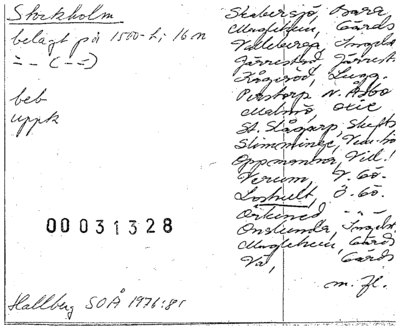 Stockholm
belagt på 1500-t; 16 n
=- (--)
beb
uppk
00031328
Hallberg SOÅ 1976:81
Skabersjö, Bara
Maglehem, Gärds
Valleberga, Ingelst.
Järrestad, Järrest
Kågeröd, Lugg.
Perstorp N. Åsbo
Malmö, Oxie
St. Slågarp, Skytts
Slimminge, Vem-hö
Oppmanna, Vill.
Verum, V. Gö.
Loshult, Ö. Gö.
Örkened -"-
Onslunda, Ingelst.
Maglehem, Gärds
Vä, Gärds
m. fl.